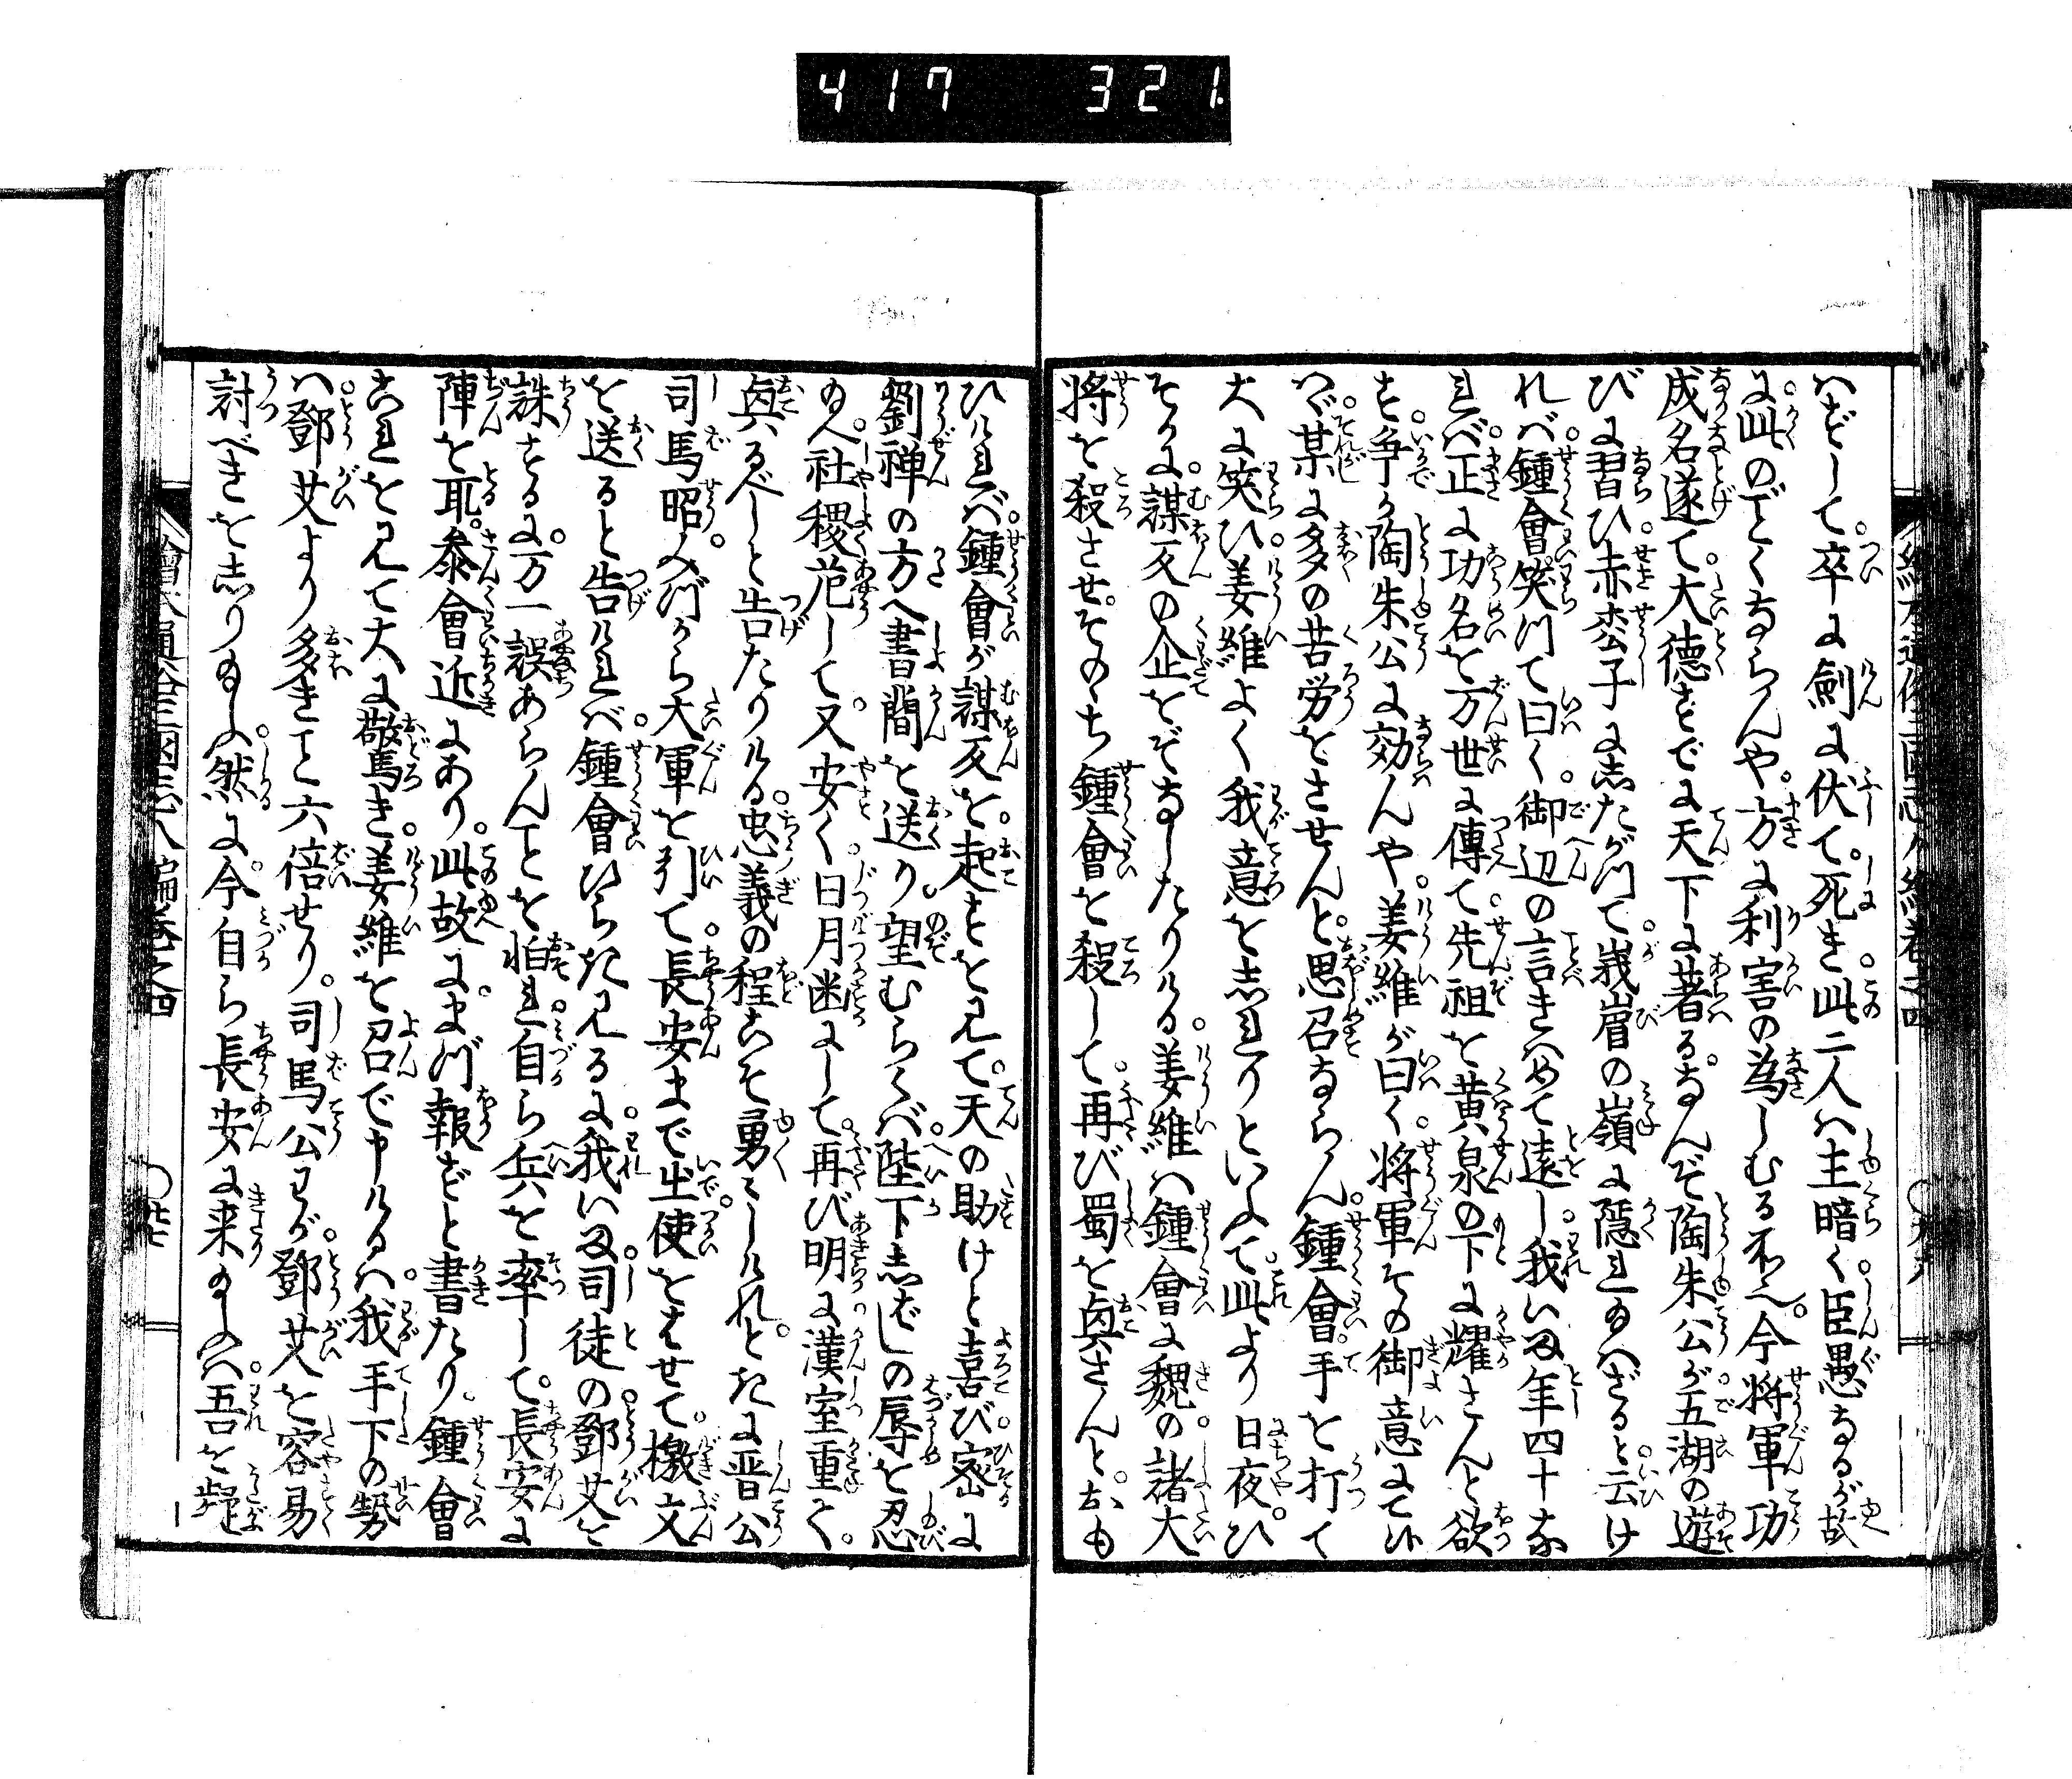 417 321
はずして。卒に劍に伏て。死き。此二人は主暗く。臣愚なるが故
に。此のごくならんや。方に利害の為しむる所也。今将軍功
成名遂て。大徳すでに天下に著る。なんぞ陶朱公が。五湖の遊
びに習ひ。赤松子にしたがつて。峩眉の嶺に隠れ玉はざると。云け
れば。鍾會笑つて曰く。御辺の言きはめて遠し。我いま年四十な
れば。正に功名を万世に傳て。先祖を黄泉の下に耀さんと欲
す。争か陶朱公に効んや。姜維が曰く。将軍その御意にて候
はゞ。某に多の苦労をさせんと。思召ならん。鍾會手を打て
大に笑ひ。姜維よく我意をしれりといふて。此より日夜。ひ
そかに。謀反の企をぞなしたりける。姜維は鍾會に魏の。諸大
将を殺させ。そのゝち鍾會を殺して。再び蜀を興さんと。おも
ひければ。鍾會が謀反を。起さを見て。天の助けと喜び。密に
劉禅の方へ書簡を送り。望むらくは。陛下しばしの辱を忍
玉へ。社稷危して。又安く。日月幽にして。再び明に。漢室重く。
興るべしと告たりける。忠義の程こそ勇〻しけれ。ときに晋公
司馬昭。みづから大軍を引て。長安まで出。使をはせて。檄文
を送ると告ければ。鍾會ひらき見るに。我いま。司徒の。鄧艾を
誅するに。万一誤あらんことを怕れ。自ら兵を率して。長安に
陣を取。参會近にあり。此故に。まづ報ずと書たり。鍾會
これを見て大に驚き。姜維を召で申けるは。我手下の勢
は。鄧艾より多きこと六倍せり。司馬公わが。鄧艾を容易
討べきをしり玉ふ。然に今。自ら長安に来り玉ふは。吾を疑
繪本通俗三國志八編巻之四